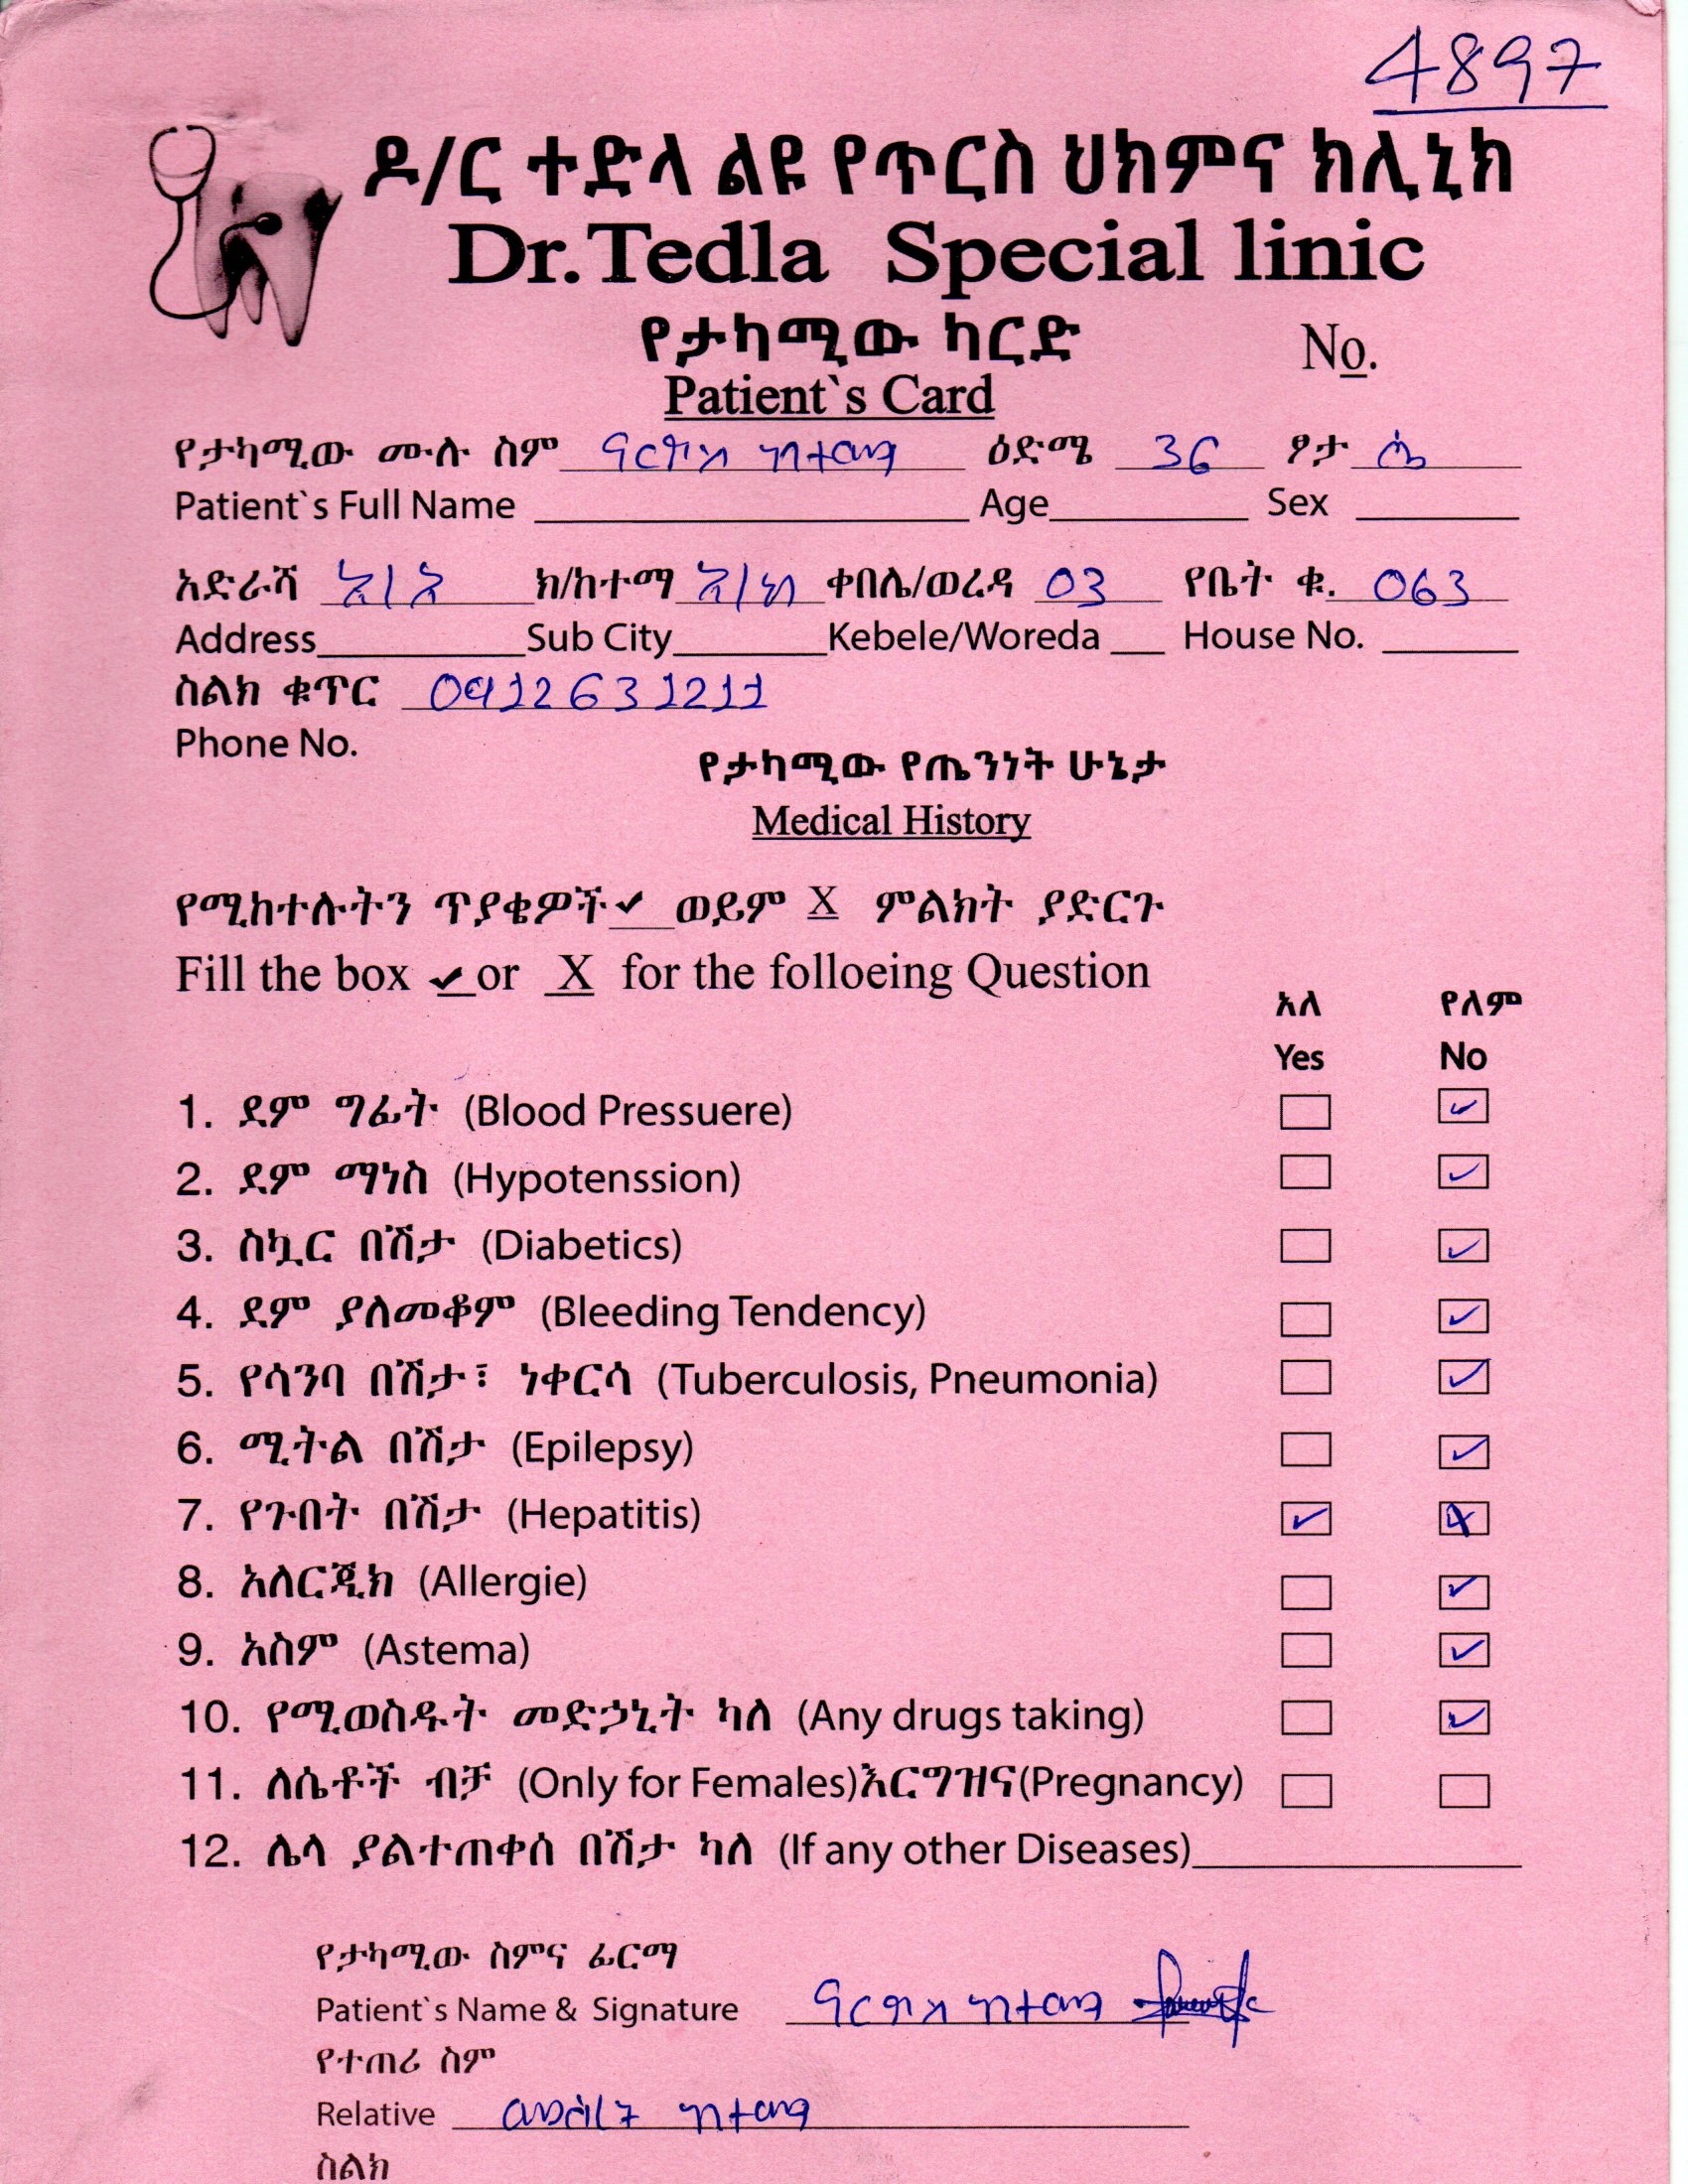 4897
ዶ/ር ተድላ ልዩ የጥርስ ህክምና ክሊኒክ
Dr.Tedla Special linic
የታካሚው ካርድ No.
Patient`s Card
የታካሚው ሙሉ ስም ዕድሜ 36 ፆታ ሴ
Patient`s Full Name Age Sex
አድራሻ አ/አ ክ/ከተማ ቀበሌ/ወረዳ 03 የቤት ቁ. 063
Address Sub City Kebele/Woreda House No.
ስልክ ቁጥር 0912631211
Phone No.
የታካሚው የጤንነት ሁኔታ
Medical History
የሚከተሉትን ጥያቄዎች ✔ ወይም X ምልክት ያድርጉ
Fill the box ✔ or X for the folloeing Question
አለ የለም
Yes No
1. ደም ግፊት (Blood Pressuere) ✓
2. ደም ማነስ (Hypotenssion) ✓
3. ስኳር በሽታ (Diabetics) ✓
4. ደም ያለመቆም (Bleeding Tendency) ✓
5. የሳንባ በሽታ፣ ነቀርሳ (Tuberculosis, Pneumonia) ✓
6. ሚትል በሽታ (Epilepsy) ✓
7. የጉበት በሽታ (Hepatitis) ✓
8. አለርጂክ (Allergie) ✓
9. አስም (Astema) ✓
10. የሚወስዱት መድኃኒት ካለ (Any drugs taking) ✓
11. ለሴቶች ብቻ (Only for Females)እርግዝና(Pregnancy)
12. ሌላ ያልተጠቀሰ በሽታ ካለ (If any other Diseases)
የታካሚው ስምና ፊርማ
Patient`s Name & Signature
የተጠሪ ስም
Relative
ስልክ